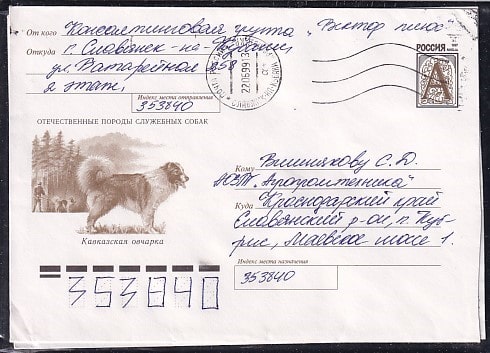 От кого Консалтинговая группа "Вектор плюс"
Откуда г. Славянск-на-Кубани,
ул. Батарейная 358
я этаж,
Индекс места отправления
353840
РОССИЯ
А
22.06.99
ОТЕЧЕСТВЕННЫЕ ПОРОДЫ СЛУЖЕБНЫХ СОБАК
Кавказская овчарка
Кому Вишнякову С.Д.
"Агропромтехника"
Куда Краснодарский край
Славянский р-он, п. Куб-
рис, Маевское шоссе 1.
Индекс места назначения
353840
353840